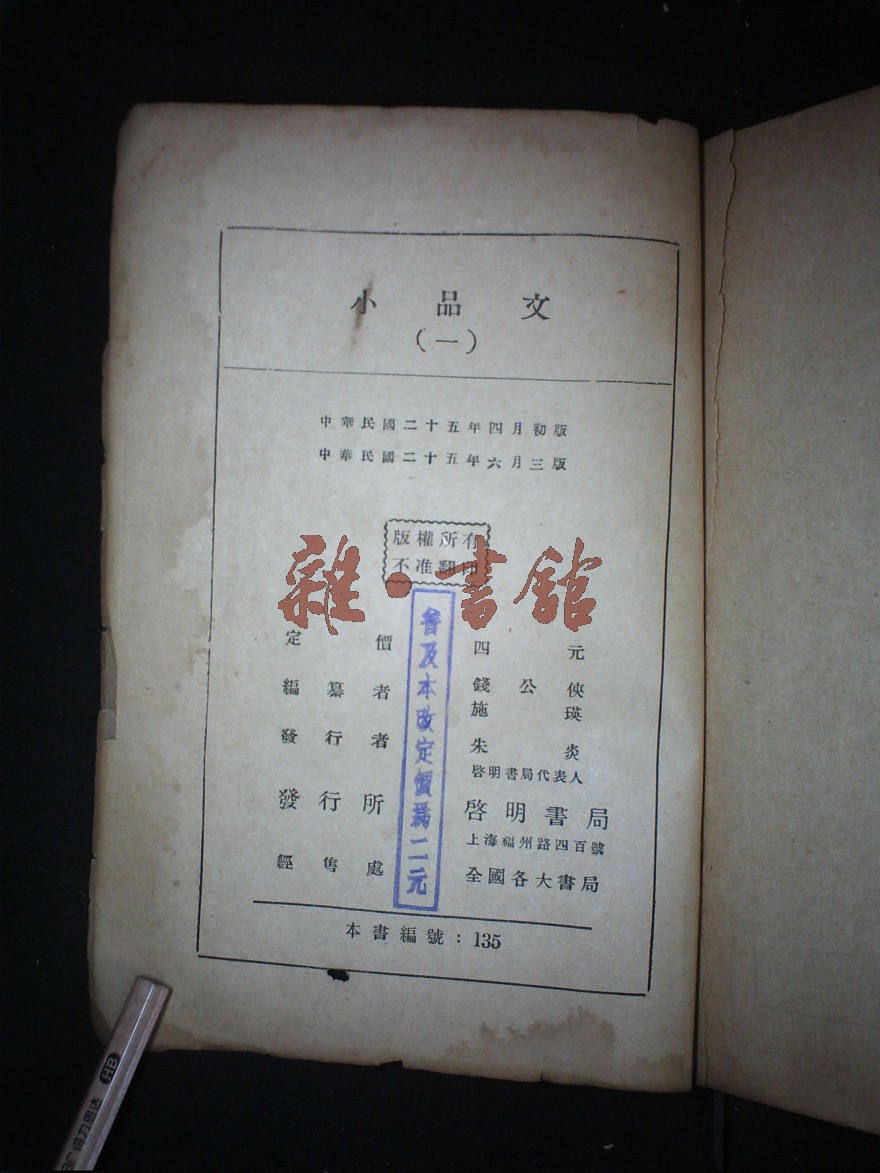 小品文
（一）
中華民國二十五年四月初版
中華民國二十五年六月三版
版權所有
不准翻印
雜·書館
定價 四元
編纂者 錢公俠
施瑛
發行者 朱炎
啓明書局代表人
發行所 啓明書局
上海福州路四百號
經售處 全國各大書局
普及本改定價爲二元
本書編號：135
HB
得力思达